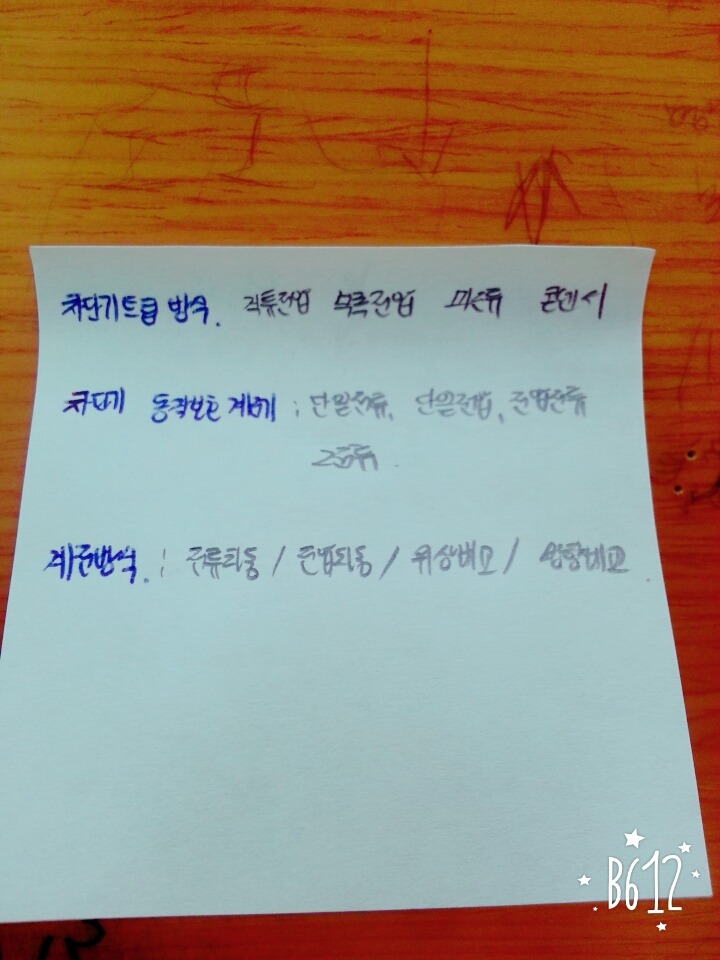 차단기트립 방식. 직류전압 부족전압 과전류 콘덴서
차단기 동작보호 계전기 : 단일전류, 단일전압, 전압전류
2전류.
계전방식. : 전류차동 / 전압차동 / 위상비교 / 방향비교.
B612